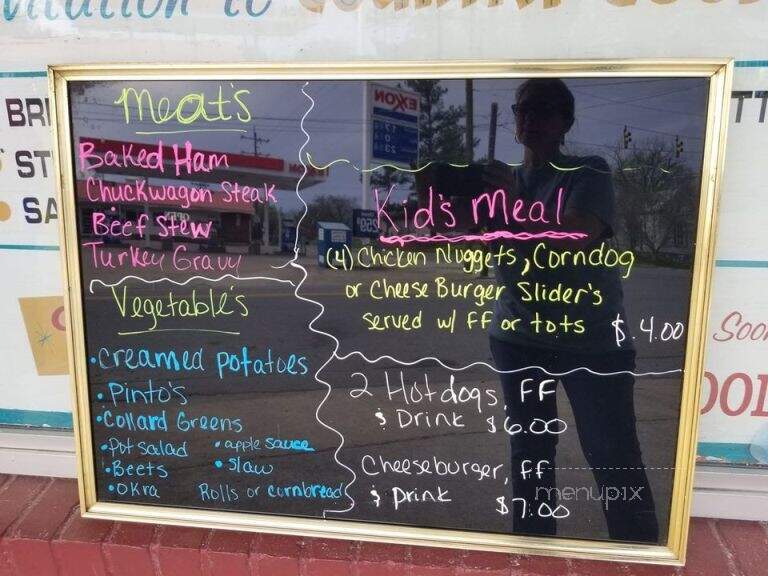 Meat's
Baked Ham
Chuckwagon Steak
Beef Stew
Turkey Gravy
Vegetable's
• Creamed potatoes
• Pinto's
• Collard Greens
• Pot salad • apple sauce
• Beets • slaw
• Okra Rolls or cornbread
Kid's Meal
(4) Chicken Nuggets, Corndog
or Cheese Burger Slider's
served w/ FF or tots $.4.00
2 Hotdogs, FF
& Drink $6.00
Cheeseburger, FF
& Drink $7.00
menupix
BRI
ST
SA
TT
Soo
OOL
EXXON